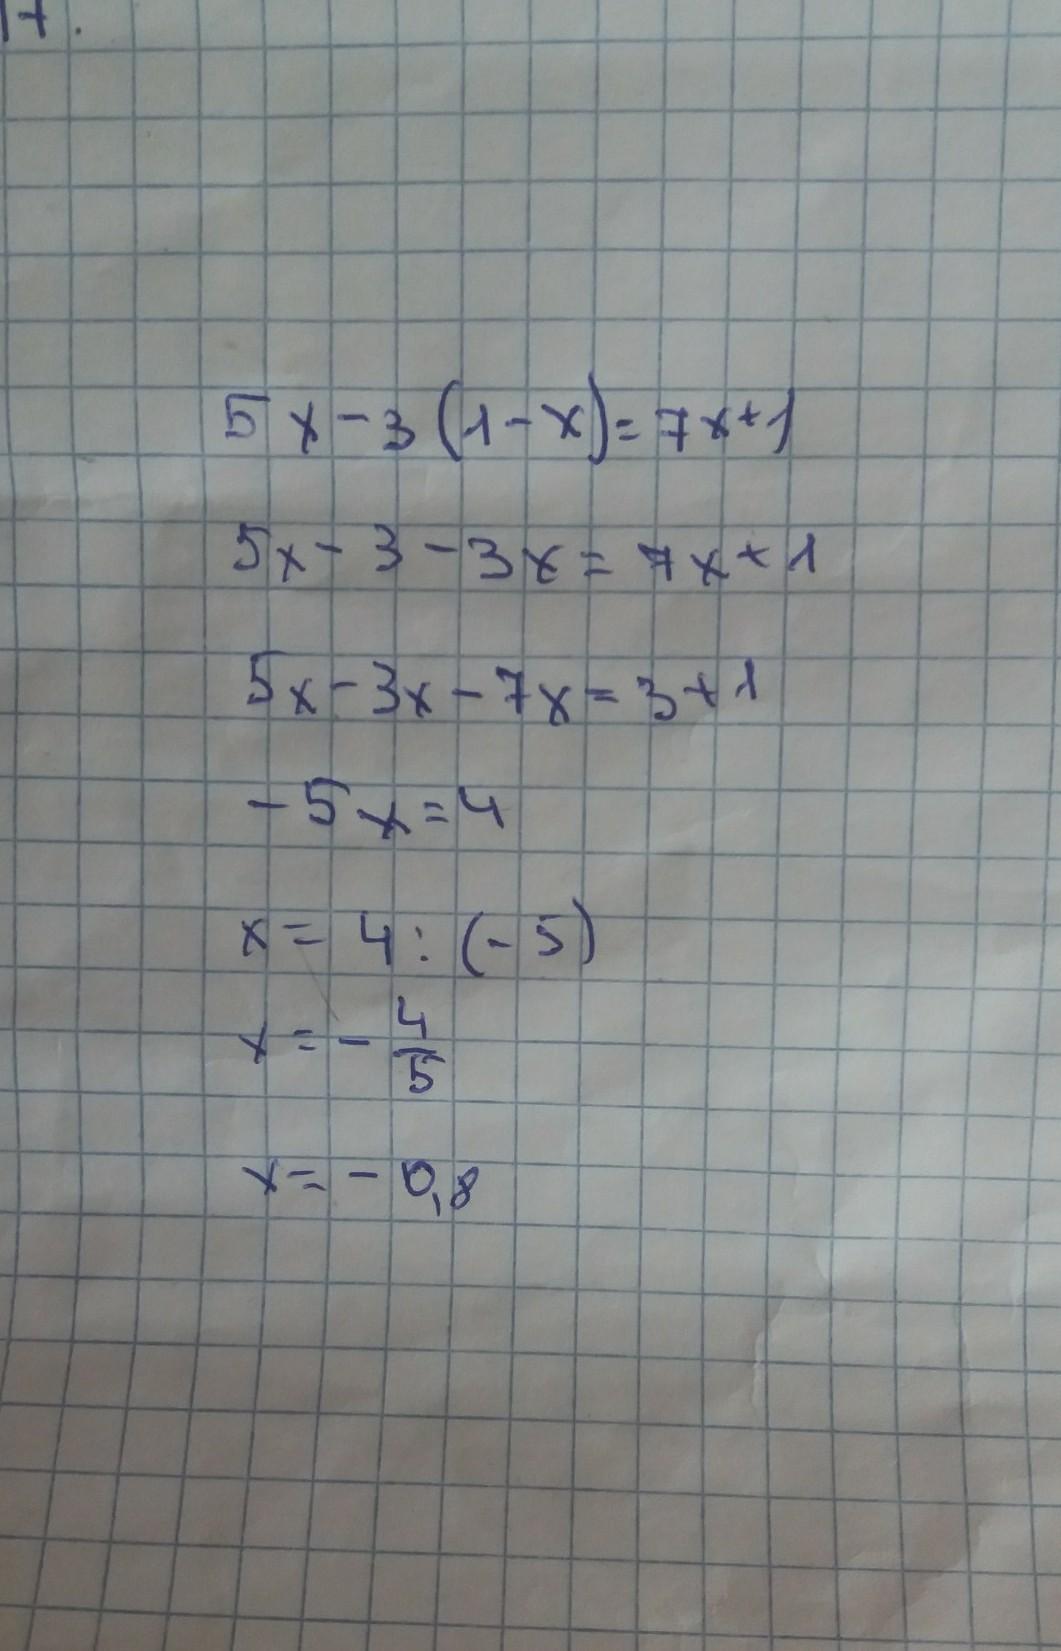 5x - 3(1 - x) = 7x + 1
5x - 3 - 3x = 7x + 1
5x - 3x - 7x = 3 + 1
- 5x = 4
x = 4 : (- 5)
x = - 4/5
x = - 0,8